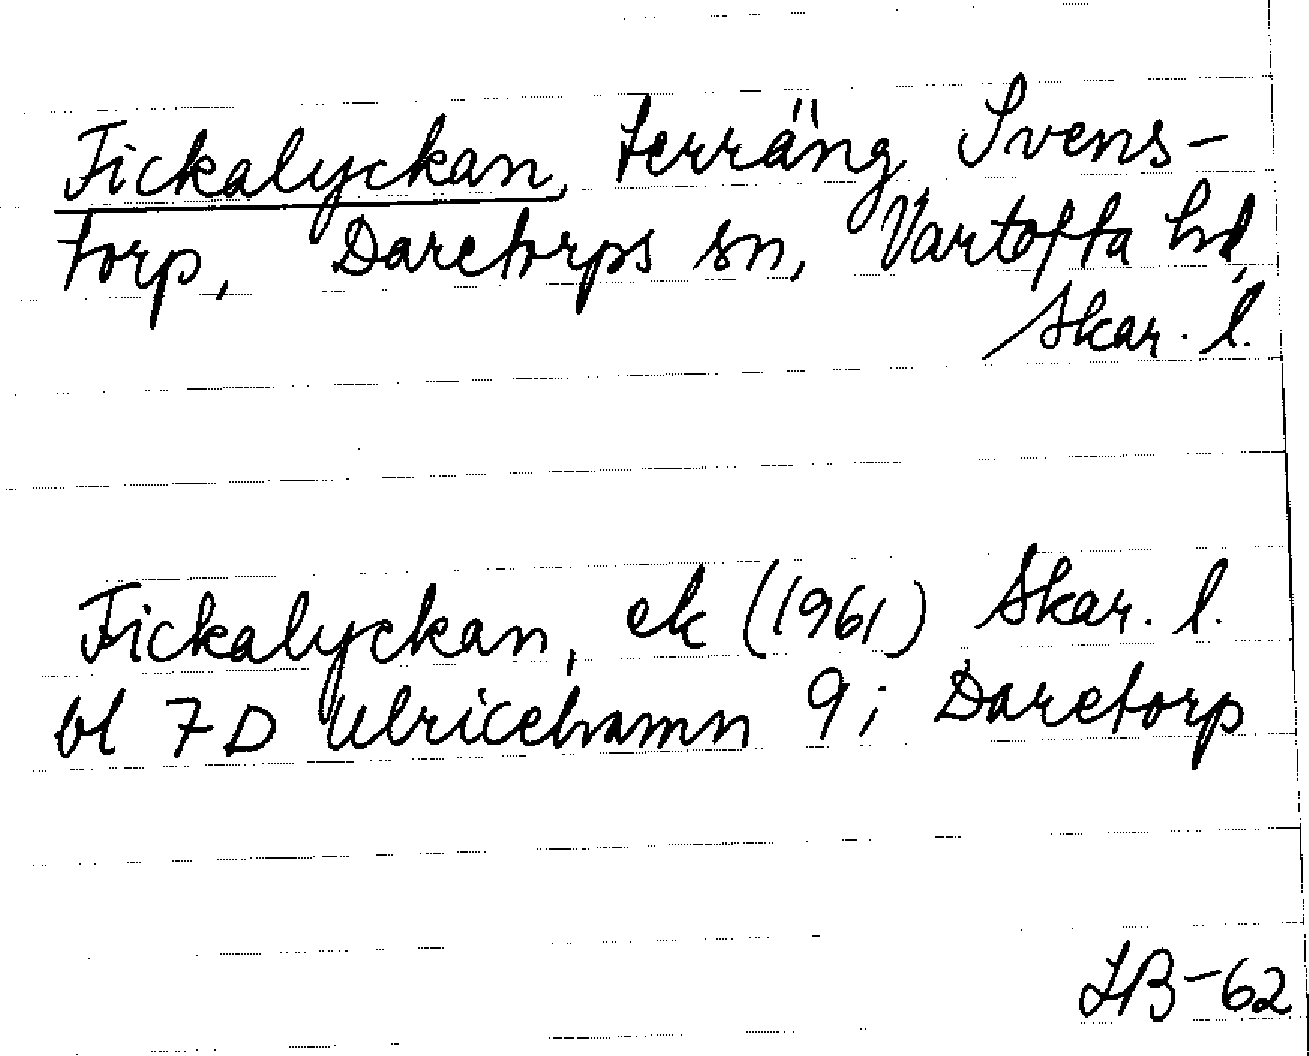 Fickalyckan, terräng Svens-
torp, Daretorps sn, Vartofta hd,
Skar. l.
Fickalyckan, ek (1961) Skar. l.
bl 7D Ulricehamn 9i Daretorp
LB-62